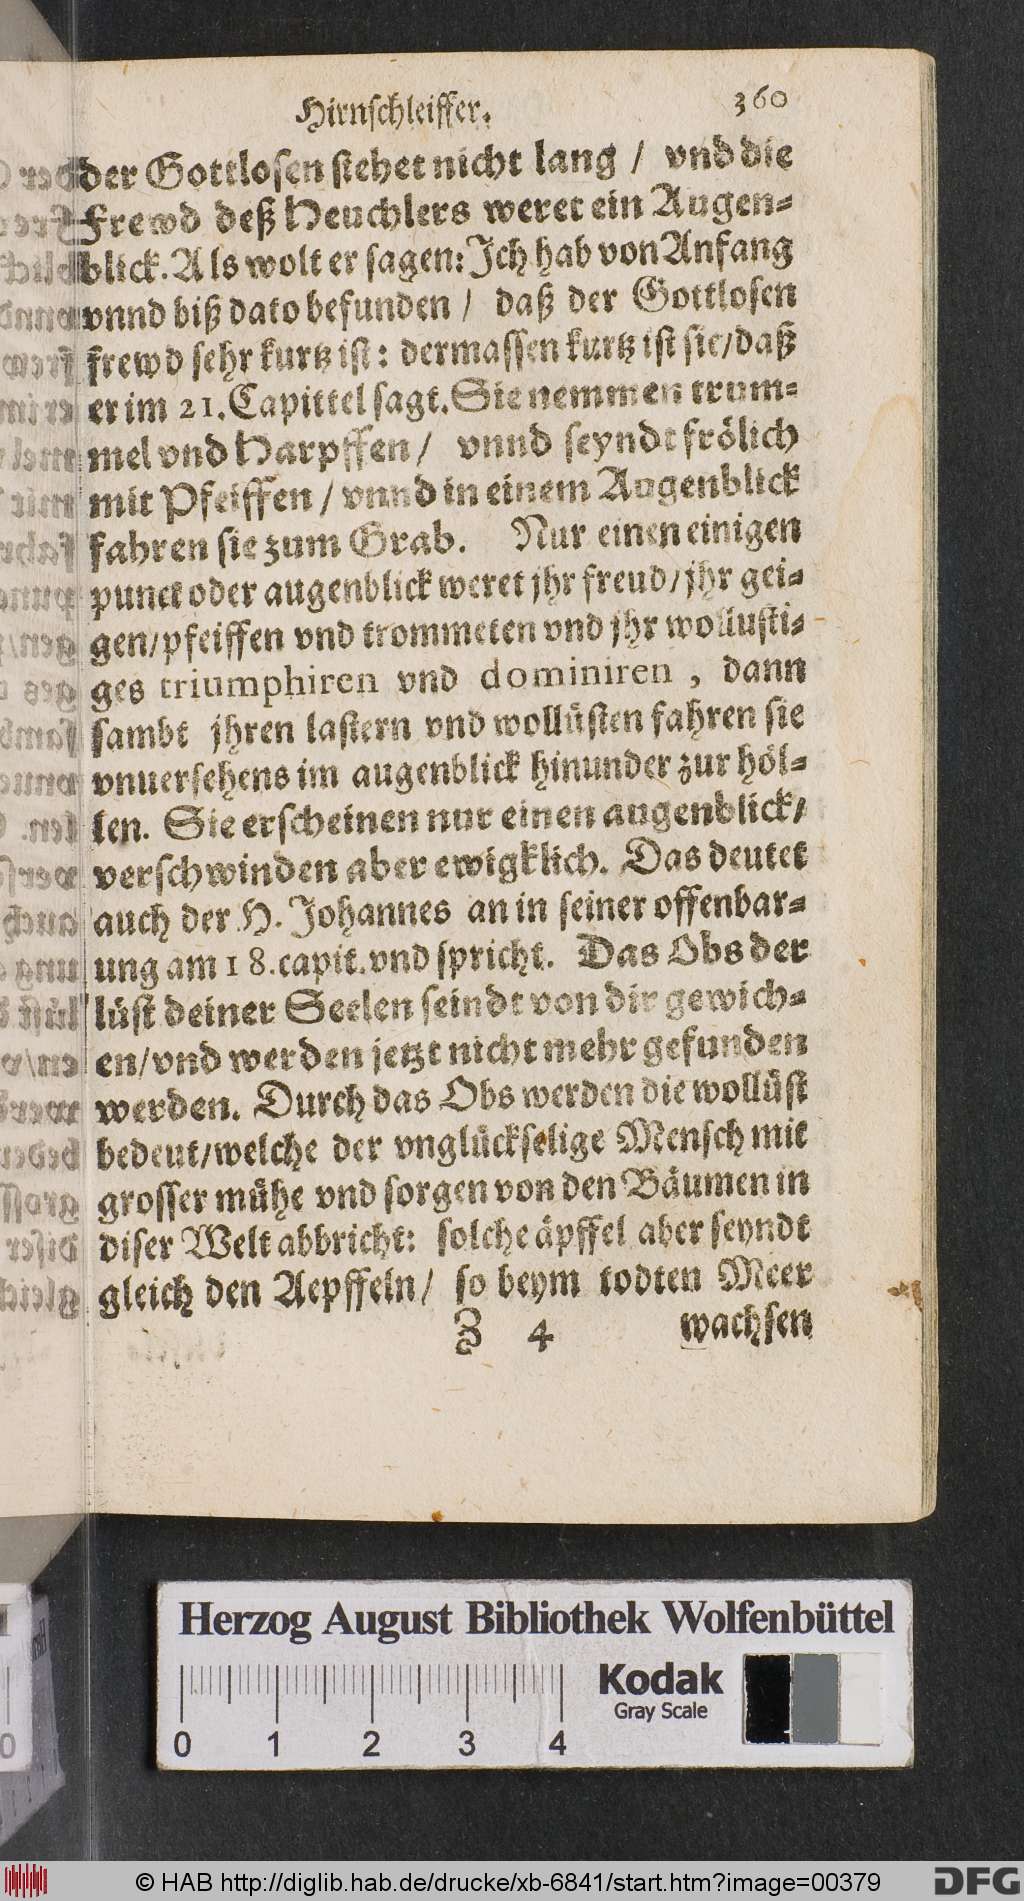 Hirnschleiffer. 360
der Gottlosen stehet nicht lang / vnd die
Frewd deß Heuchlers weret ein Augen-
blick. Als wolt er sagen: Ich hab von Anfang
vnnd biß dato befunden / daß der Gottlosen
frewd sehr kurtz ist: dermassen kurtz ist sie/daß
er im 21. Capittel sagt. Sie nemmen trum-
mel vnd Harpffen / vnnd seyndt frölich
mit Pfeiffen / vnnd in einem Augenblick
fahren sie zum Grab. Nur einen einigen
punct oder augenblick weret jhr freud/jhr gei-
gen/pfeiffen vnd trommeten vnd jhr wollusti-
ges triumphiren vnd dominiren, dann
sambt jhren lastern vnd wollüsten fahren sie
vnuersehens im augenblick hinunder zur höl-
len. Sie erscheinen nur einen augenblick/
verschwinden aber ewigklich. Das deutet
auch der H. Johannes an in seiner offenbar-
ung am 18. capit. vnd spricht. Das Obs der
lüst deiner Seelen seindt von dir gewich-
en/vnd werden jetzt nicht mehr gefunden
werden. Durch das Obs werden die wollüst
bedeut/welche der vnglückselige Mensch mit
grosser mühe vnd sorgen von den Bäumen in
diser Welt abbricht: solche äpffel aber seyndt
gleich den Aepffeln/ so beym todten Meer
Z 4 wachsen
Herzog August Bibliothek Wolfenbüttel
Kodak
Gray Scale
0 1 2 3 4
© HAB http://diglib.hab.de/drucke/xb-6841/start.htm?image=00379
DFG